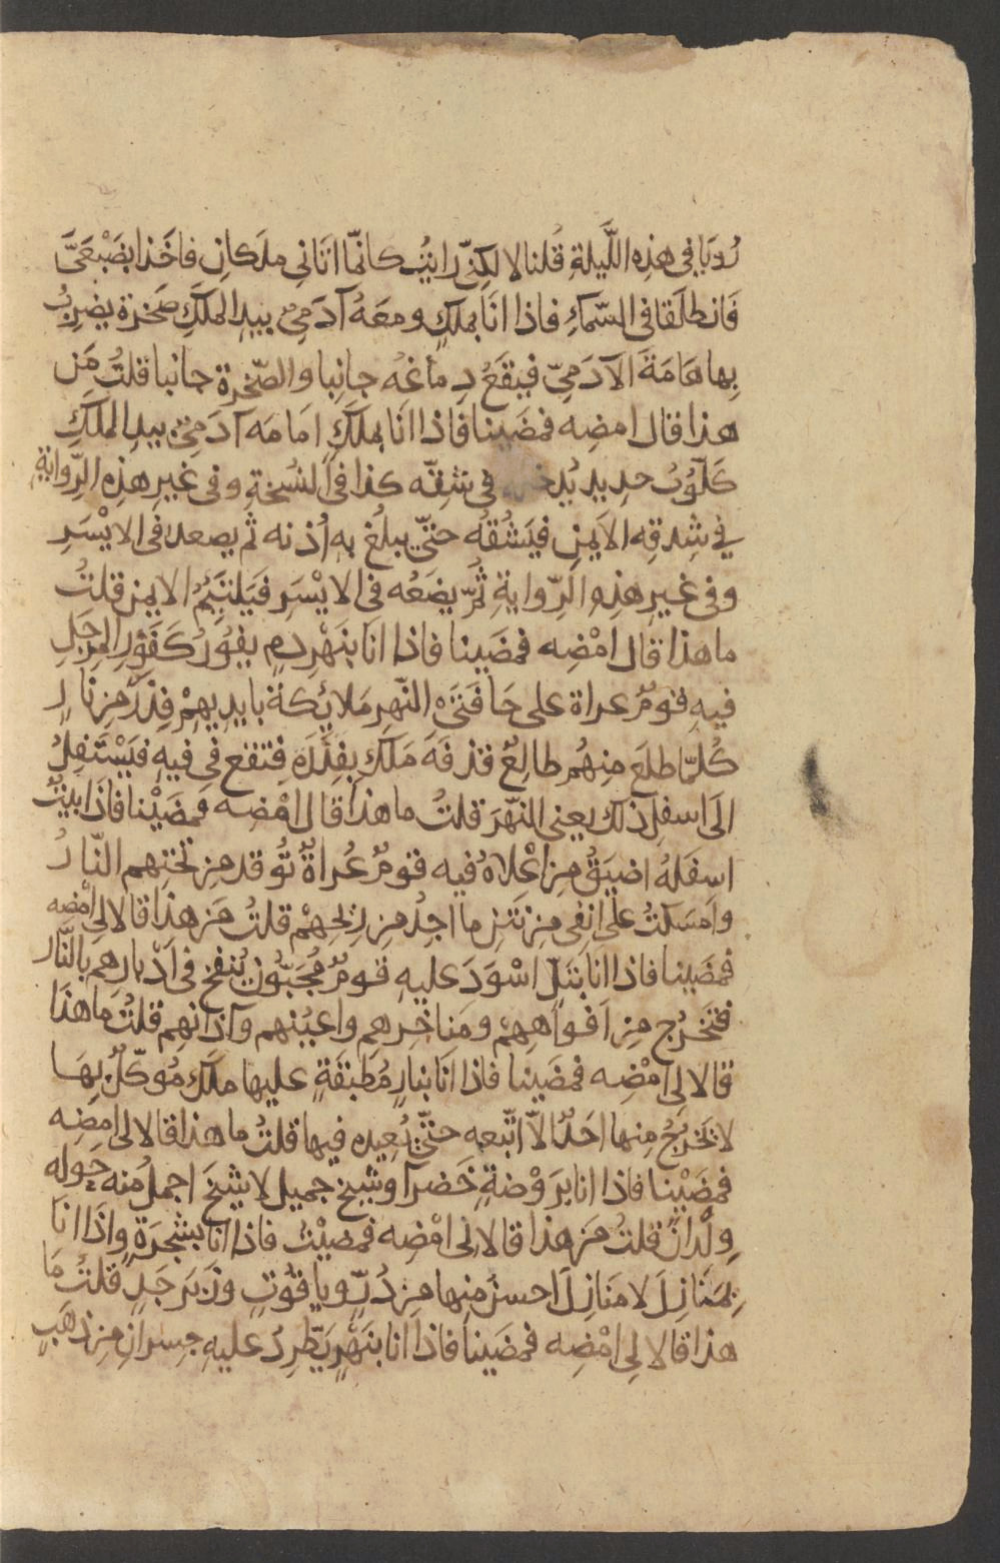 رُويَا في هذِه اللَّيلةِ قُلنا لا لكِنّي رَايتُ كانّما اتاني ملَكانِ فاخَذا بضَبْعَيَّ
فَانطلَقا في السّماءِ فاذا انَا بملَكٍ ومعَهُ آدَميّ بيدِ الملَكِ صَخرة يضرِبُ
بها هَامَةَ الآدَميّ فيَقَعُ دِماغُه جانِبا والصّخرة جانبا قلتُ مَن
هذا قال امضِه فمَضَينا فَاذا انَا بملَكٍ امَامَه آدَميّ بيدِ الملَكِ
كَلّوُبُ حديد يُدخله في شِقّه كذا في النُسخةِ وفي غيرِ هذِه الرّوايةِ
في شِدقِه الاَيمنِ فيَشُقّهُ حتّى يبلُغ به اُذنه ثم يصعد في الايْسَرِ
وفي غيرِ هذِه الرّوايةِ ثُمّ يضَعُه في الايْسَرِ فيَلتَئِمُ الايمن قلتُ
ما هذا قال امْضِه فمَضَينا فاذا انَا بنَهْرِ دمٍ يفُورُ كَفَوْرِ المِرجَلِ
فيهِ قومٌ عراة على حَافَتَيْ النّهرِ مَلائِكة بايديهِمْ فِذَرٌ مِن نارٍ
كُلّما طلَع مِنهُم طالِعٌ قذفَهُ مَلَك بفِذَرَةٍ فتقع في فيهِ فيَسْتَفِلُ
الَى اسفلِ ذلك يعني النّهرَ قلتُ ما هذا قال امْضِه فمَضَيْنا فاذا ببيْتٍ
اسفَلهُ اضيَقُ مِن اعْلاهُ فيه قومٌ عُراةٌ تُوقد مِن تحْتِهم النّارُ
وامسَكتُ على انفى مِن نَتنِ ما اجِدُ مِن رِيحِهْم قلتُ مَن هذا قالا لي امْضِه
فمَضَينا فاذا انا بتَلٍّ اسْوَدَ عليهِ قومٌ مُجَبّون يُنفخ في ادْبارهم بالنَّار
فتَخرُج مِن افواهِهِمْ ومَناخِرهم واعيُنهم وآذانهِم قلتُ مَا هذَا
قالا لي امْضِه فمَضَينا فاذا انَا بنارٍ مُطبَقَةٍ عليها ملَك مُوكّلٌ بِهَا
لا يَخرُجُ مِنها احَدٌ الاّ اتّبعه حتّى يُعِيده فيها قلتُ ما هذا قالا لي امضِه
فمَضَيْنا فاذا انا برَوْضةٍ خَضرآ وشيخ جميل لا شيخَ اجمل مِنه حَوله
وِلْدانٌ قلتُ مَن هذا قالا لي امْضِه فمضَيْتُ فاذا انا بشجَرَةٍ واذَا انَا
بِمنَازِلَ لا مَنازِلَ احسنَ مِنها مِن دُرٍّ ويَاقوتٍ وزبَرجَدٍ قلتُ مَا
هذا قالا لي امْضِه فمَضَينا فاذَا انا بنَهْرٍ يَطّرِدُ عليهِ جِسرانِ مِن ذهَبٍ